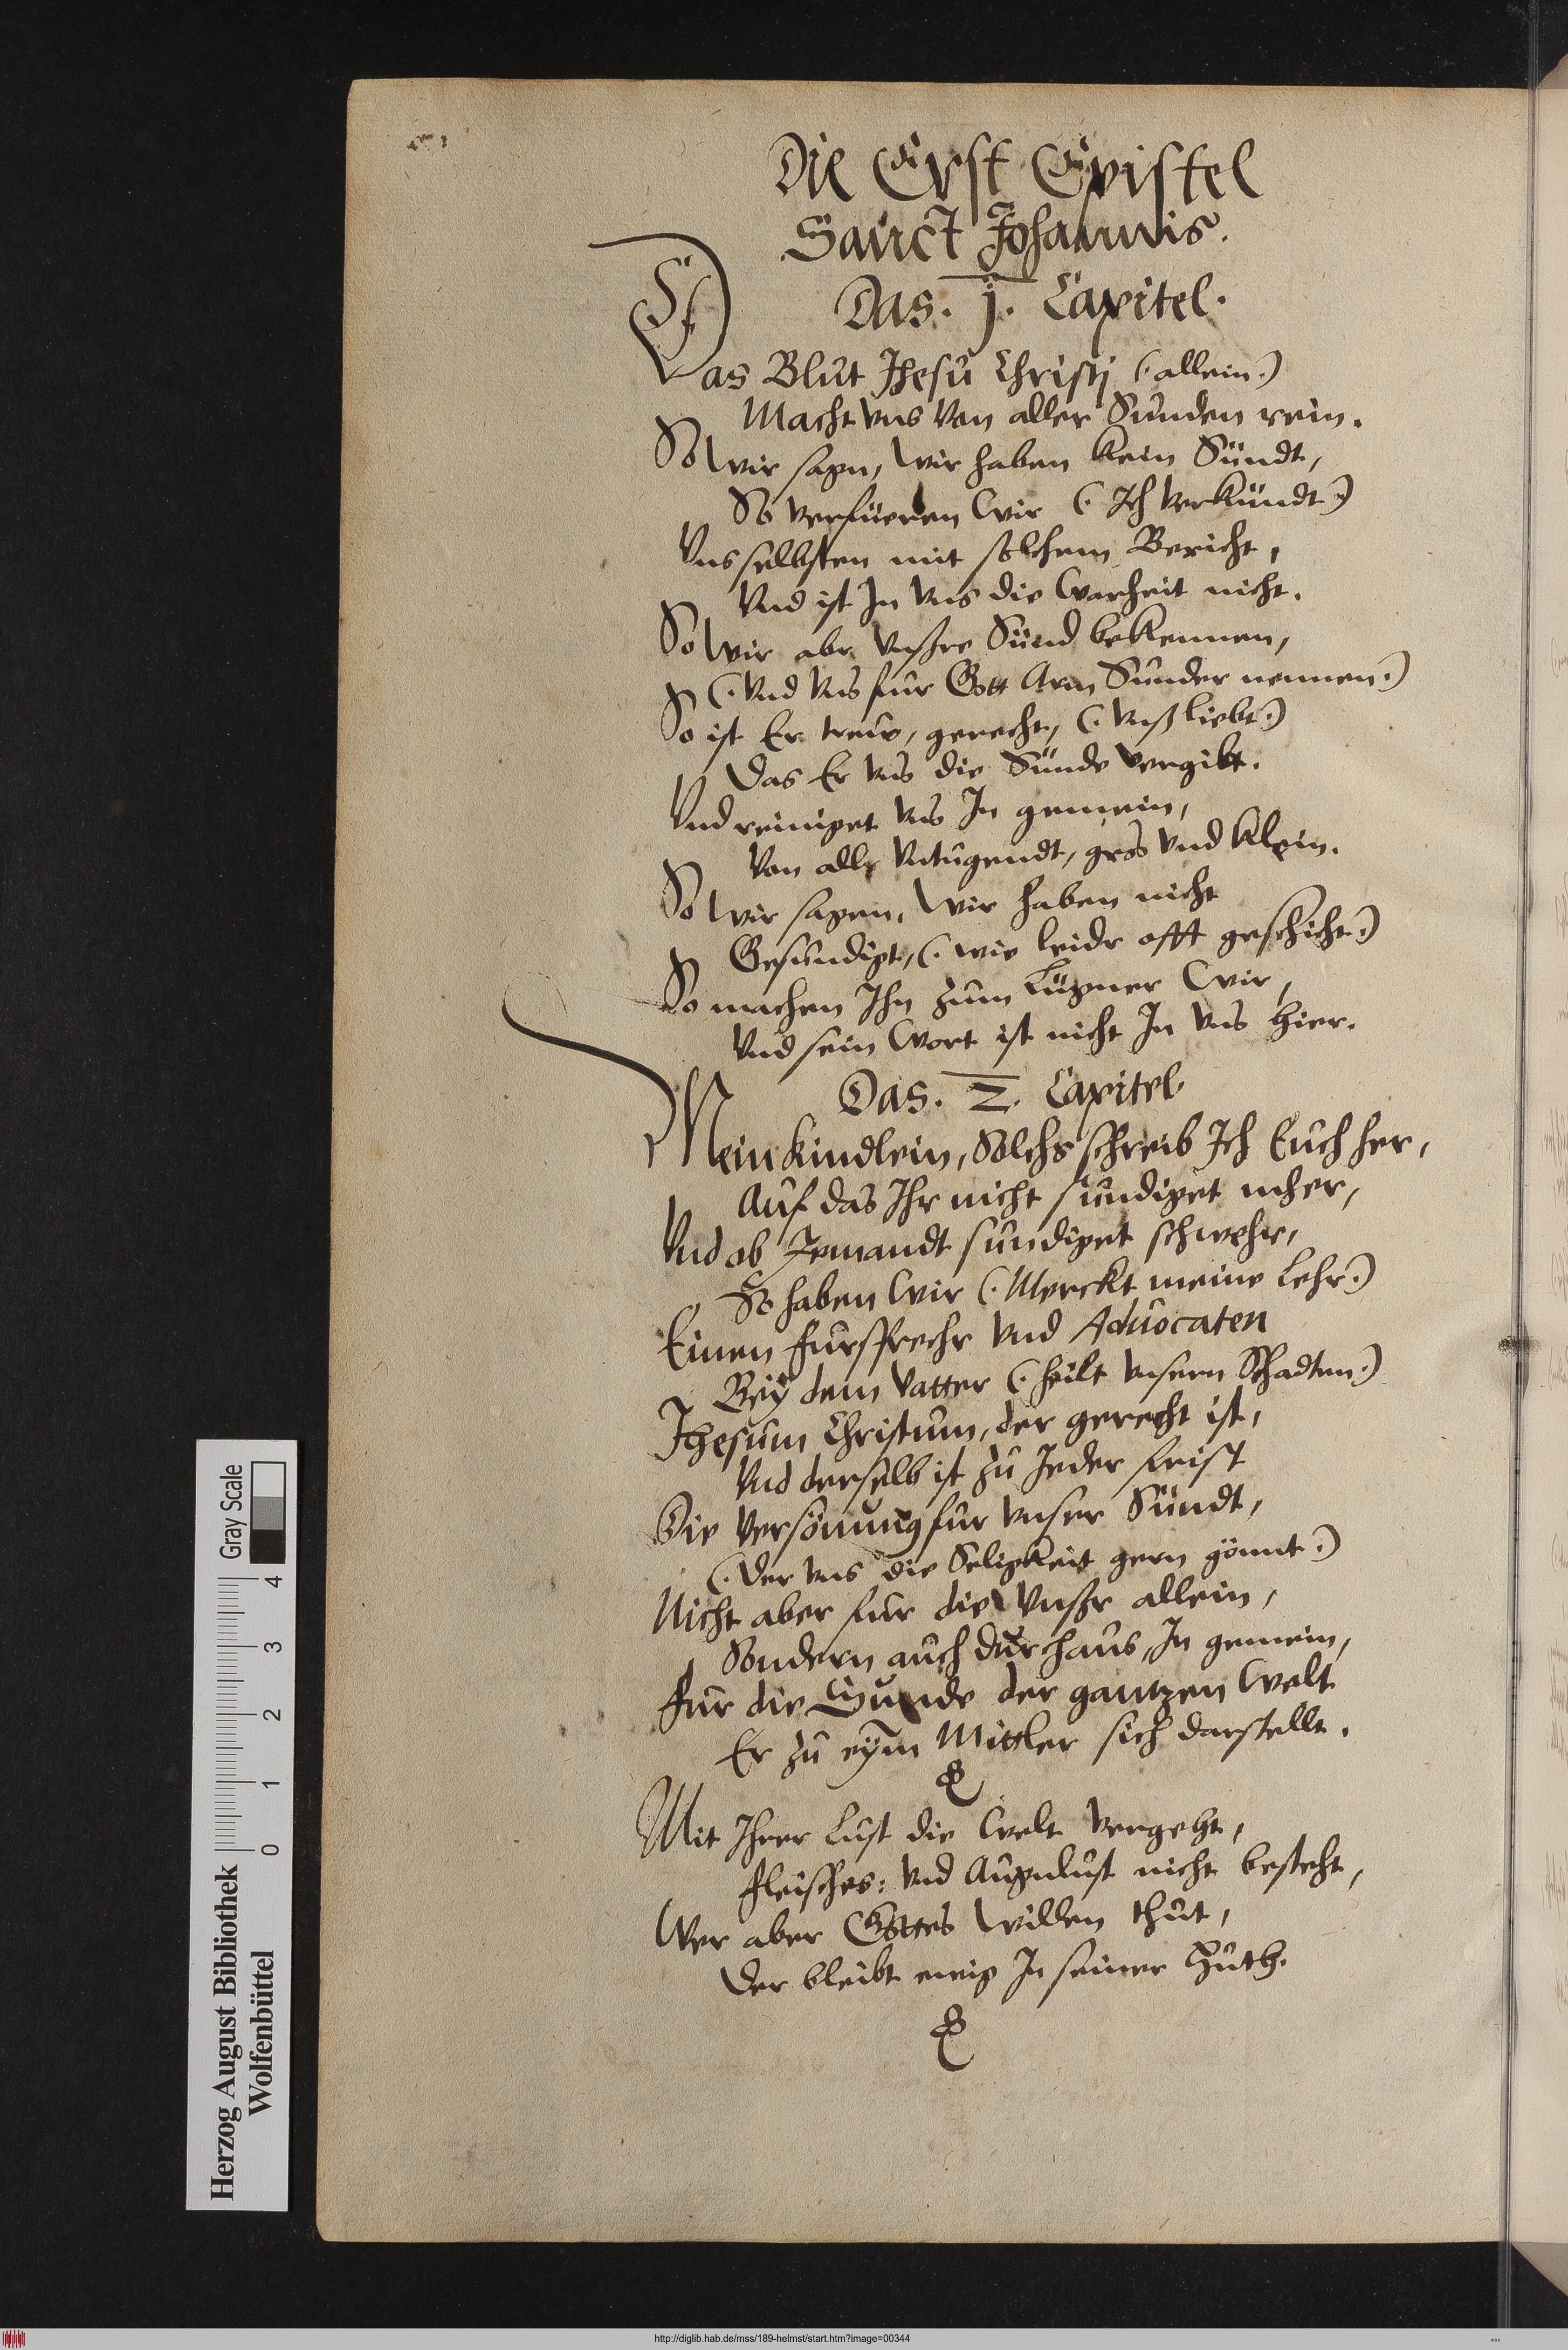 Die Erst Epistel
Sanct Johannis.
Das. j. Capitel.
Das Blut Jhesu Christj (. allein .)
Macht vns von aller Sunden rein.
So wir sagn, wir haben kein Sündt,
So verfüeren wir (. Ich verkündt .)
Vns selbsten mit solchem Bericht,
Vnd ist In vns die Warheit nicht.
So wir abr vnßre Sünd bekennen,
(. Vnd vns fur Gott Arm Sunder nennen .)
So ist Er treu, gerecht, (. vnß liebt .)
Das Er vns die Sünde vergibt.
Vnd reiniget vns In gemein,
Von allr vntugendt, gros vnd klein.
So wir sagen, wir haben nicht
Gesundigt, (. wie leidr offt geschicht .)
So machen Ihn zum Lügner wir,
Vnd sein Wort ist nicht In vns hier.
Das. 2. Capitel
Mein kindlein, Solchs schreib Ich Euch her,
Auf das Ihr nicht sundiget meher,
Vnd ob Jemandt sundiget schwehr,
So haben wir (. Merckt meine Lehr .)
Einen fursprechr vnd Aduocaten
Bey dem Vatter (. heilt vnsern Schadten .)
Jhesum Christum, der gerecht ist,
Vnd derselb ist zu Jeder frist
Die versönung fur vnser Sündt,
(. Der vns die Seligkeit gern gönnt .)
Nicht aber fur die Vnßr allein,
Sondern auch durchaus, In gemein,
Fur die Sunde der gantzen Welt
Er zu eym Mittler sich darstellt.
Mit Ihrer Lust die Welt vergeht,
Fleisches: vnd Augnlust nicht besteht,
Wer aber Gottes Willen thut,
Der bleibt ewig In seiner Huth.
Herzog August Bibliothek
Wolfenbüttel
Gray Scale
0 1 2 3 4
http://diglib.hab.de/mss/189-helmst/start.htm?image=00344